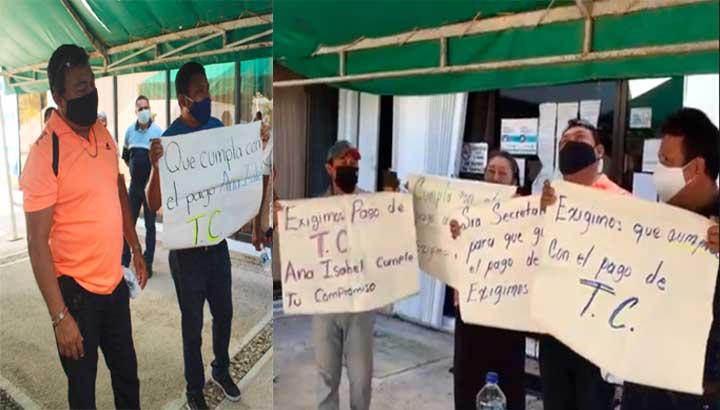 Que cumpla con
el pago Ana Isabel
T.C
Exigimos Pago de
T.C
Ana Isabel Cumple
Tu Compromiso
Cumpla con
pago
Exigimos
Sra Secretar
para que
el pago de
Exigimos
Exigimos que cumpla
Con el pago de
T.C.